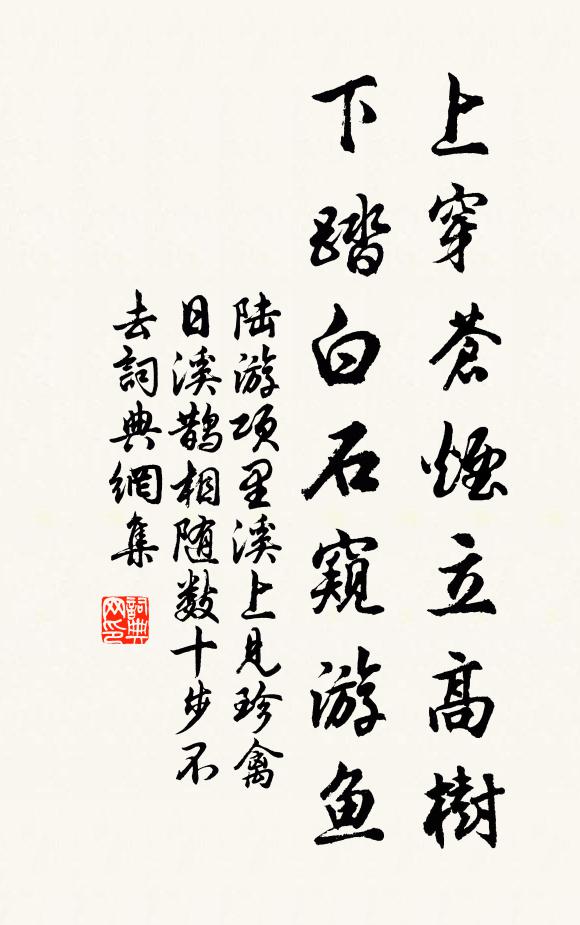 上穿蒼煙立高樹
下踏白石窺游魚
陆游项里溪上见珍禽
日溪鹊相随数十步不
去詞典網集
詞典
网印